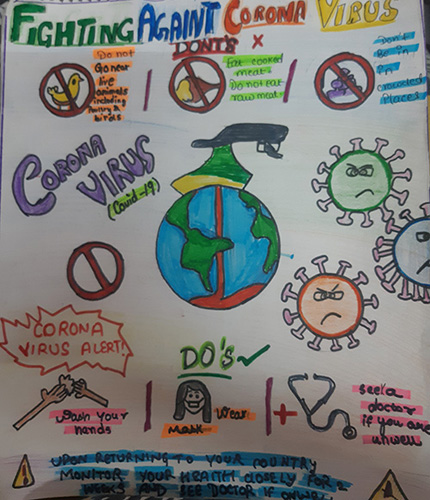 FIGHTING AGAINT CORONA VIRUS
DONT'S
Do not
Go near
live
animals
including
Poultry &
birds
Eat cooked
meat.
Do not eat
raw meat.
Don't
Be in
in
crowded
Places
CORONA
VIRUS
(Covid-19)
CORONA
VIRUS ALERT!
DO'S
Wash your
hands
Wear
Mask
see a
doctor
if you are
unwell
UPON RETURNING TO YOUR COUNTRY
MONITOR YOUR HEALTH CLOSELY FOR 2
WEEKS AND SEE DOCTOR IF UNWELL